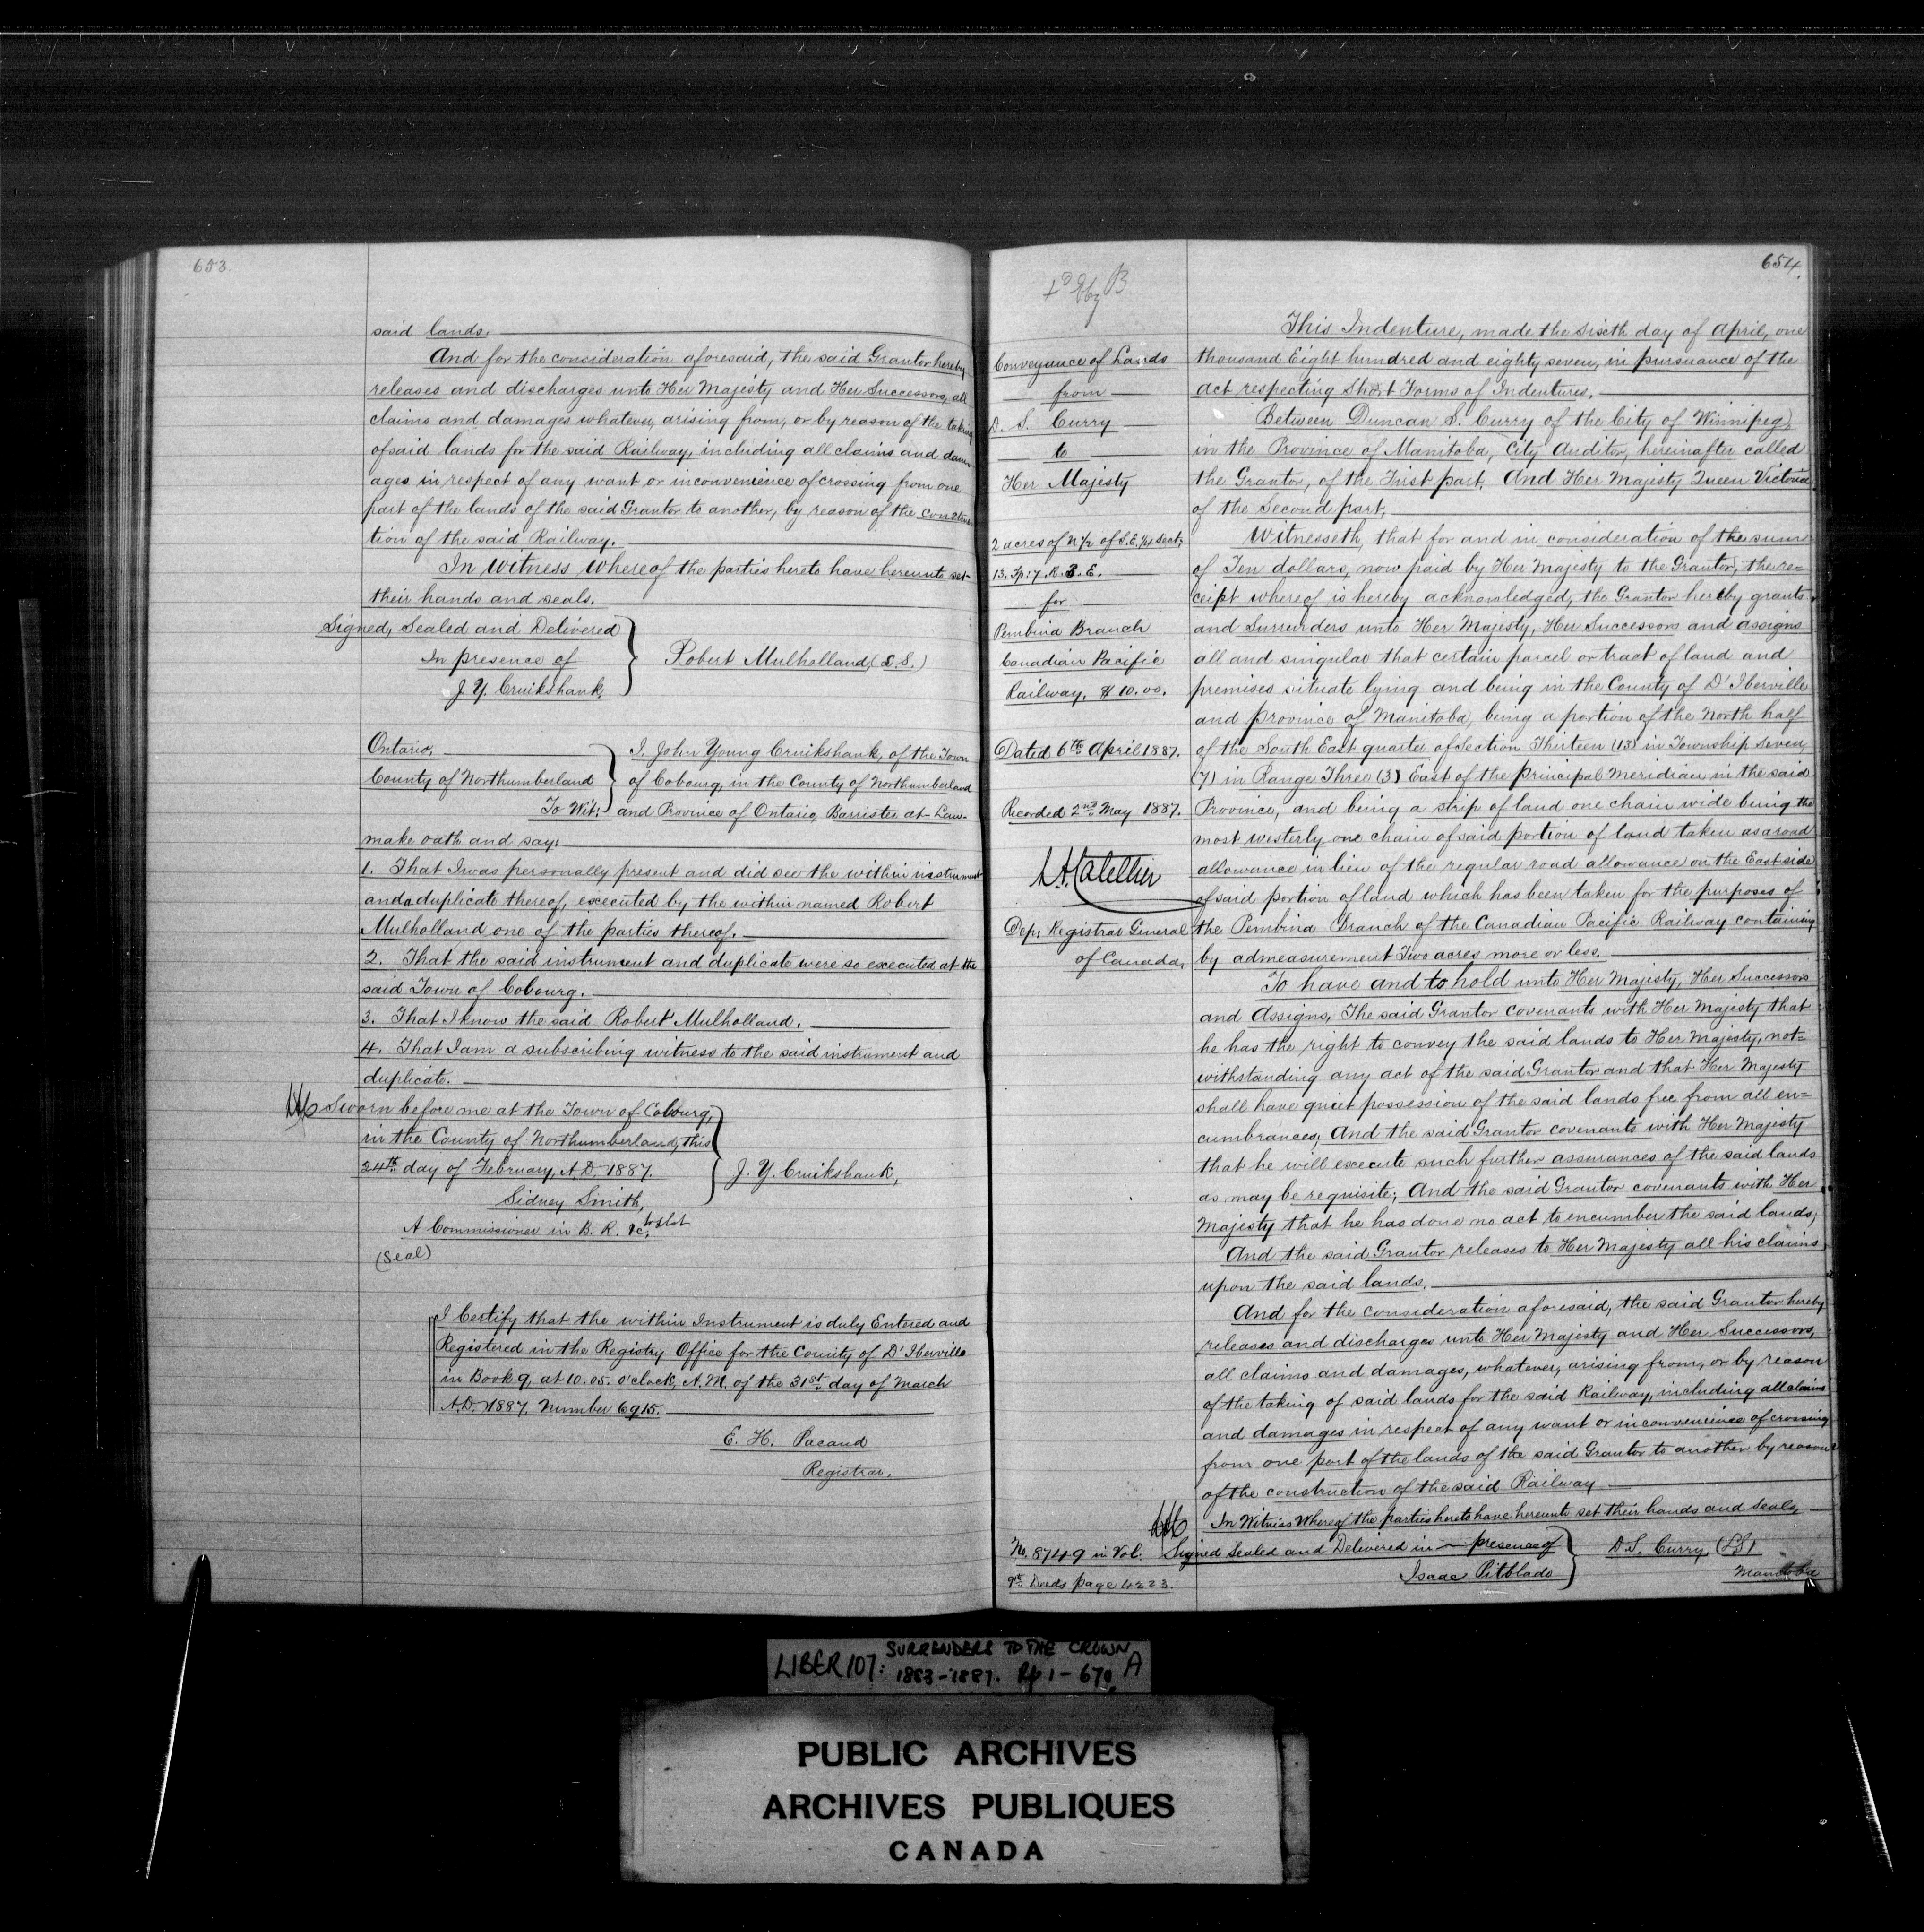 653.
said lands.
And for the consideration aforesaid, the said Grantor hereby
releases and discharges unto Her Majesty and Her Successors, all
claims and damages whatever, arising from, or by reason of the taking
of said lands for the said Railway, including all claims and dam-
ages in respect of any want or inconvenience of crossing from one
part of the lands of the said Grantor to another, by reason of the construc-
tion of the said Railway.
In Witness Whereof the parties hereto have hereunto set
their hands and seals.
Signed, Sealed and Delivered
In presence of
J. Y. Cruikshank.
Robert Mulholland (L.S.)
Ontario,
County of Northumberland
To Wit:
I. John Young Cruikshank, of the Town
of Cobourg, in the County of Northumberland
and Province of Ontario, Barrister at-Law-
make oath and say:
1. That I was personally present and did see the within instrument
and a duplicate thereof, executed by the within named Robert
Mulholland one of the parties thereof.
2. That the said instrument and duplicate were so executed at the
said Town of Cobourg.
3. That I know the said Robert Mulholland.
4. That I am a subscribing witness to the said instrument and
duplicate.
Sworn before me at the Town of Cobourg,
in the County of Northumberland, this
24th day of February, A.D. 1887.
Sidney Smith,
A Commissioner in B. R. &c,
(Seal)
J. Y. Cruikshank,
I Certify that the within Instrument is duly Entered and
Registered in the Registry Office for the County of D'Iberville
in Book 9, at 10.05. o'clock, A.M. of the 31st day of March
A.D. 1887. Number 6915.
E. H. Pacaud
Registrar.
654.
B
Conveyance of Lands
from
D. S. Curry
to
Her Majesty
2 acres of N ½ of S.E. ¼ Sect:
13. Tp: 7. R. 3. E.
for
Pembina Branch
Canadian Pacific
Railway, $10.00.
Dated 6th April 1887.
Recorded 2nd May 1887.
L.A. Catellier
Dep: Registrar General
of Canada,
No. 8749 in Vol.
9th Deeds page 4223.
This Indenture, made the sixth day of April, one
thousand Eight hundred and eighty seven, in pursuance of the
act respecting Short Forms of Indentures.
Between Duncan S. Curry of the City of Winnipeg,
in the Province of Manitoba, City Auditor, hereinafter called
the Grantor, of the First part. And Her Majesty Queen Victoria
of the Second part.
Witnesseth, that for and in consideration of the sum
of Ten dollars, now paid by Her Majesty to the Grantor, the re=
ceipt whereof is hereby acknowledged, the Grantor hereby grants
and Surrenders unto Her Majesty, Her Successors and assigns
all and singular that certain parcel or tract of land and
premises situate lying and being in the County of D'Iberville
and province of Manitoba, being a portion of the North half
of the South East quarter of Section Thirteen (13) in Township Seven
(7) in Range Three (3) East of the principal Meridian in the said
Province, and being a strip of land one chain wide being the
most westerly one chain of said portion of land taken as a road
allowance in lieu of the regular road allowance on the East side
of said portion of land which has been taken for the purposes of
the Pembina Branch of the Canadian Pacific Railway containing
by admeasurement Two acres more or less.
To have and to hold unto Her Majesty, Her Successors
and Assigns, The said Grantor covenants with Her Majesty that
he has the right to convey the said lands to Her Majesty, not=
withstanding any act of the said Grantor and that Her Majesty
shall have quiet possession of the said lands free from all en=
cumbrances; And the said Grantor covenants with Her Majesty
that he will execute such further assurances of the said lands
as may be requisite; And the said Grantor covenants with Her
Majesty that he has done no act to encumber the said lands;
And the said Grantor releases to Her Majesty all his claims
upon the said lands.
And for the consideration aforesaid, the said Grantor hereby
releases and discharges unto Her Majesty and Her Successors,
all claims and damages, whatever, arising from, or by reason
of the taking of said lands for the said Railway, including all claims
and damages in respect of any want or inconvenience of crossing
from one part of the lands of the said Grantor to another by reason
of the construction of the said Railway
In Witness Whereof the parties hereto have hereunto set their hands and seals,
Signed Sealed and Delivered in presence of
Isaac Pitblado
D. S. Curry (LS)
Manitoba
LIBER 107: SURRENDERS TO THE CROWN, A
1883-1887. Pp 1-670.
PUBLIC ARCHIVES
ARCHIVES PUBLIQUES
CANADA